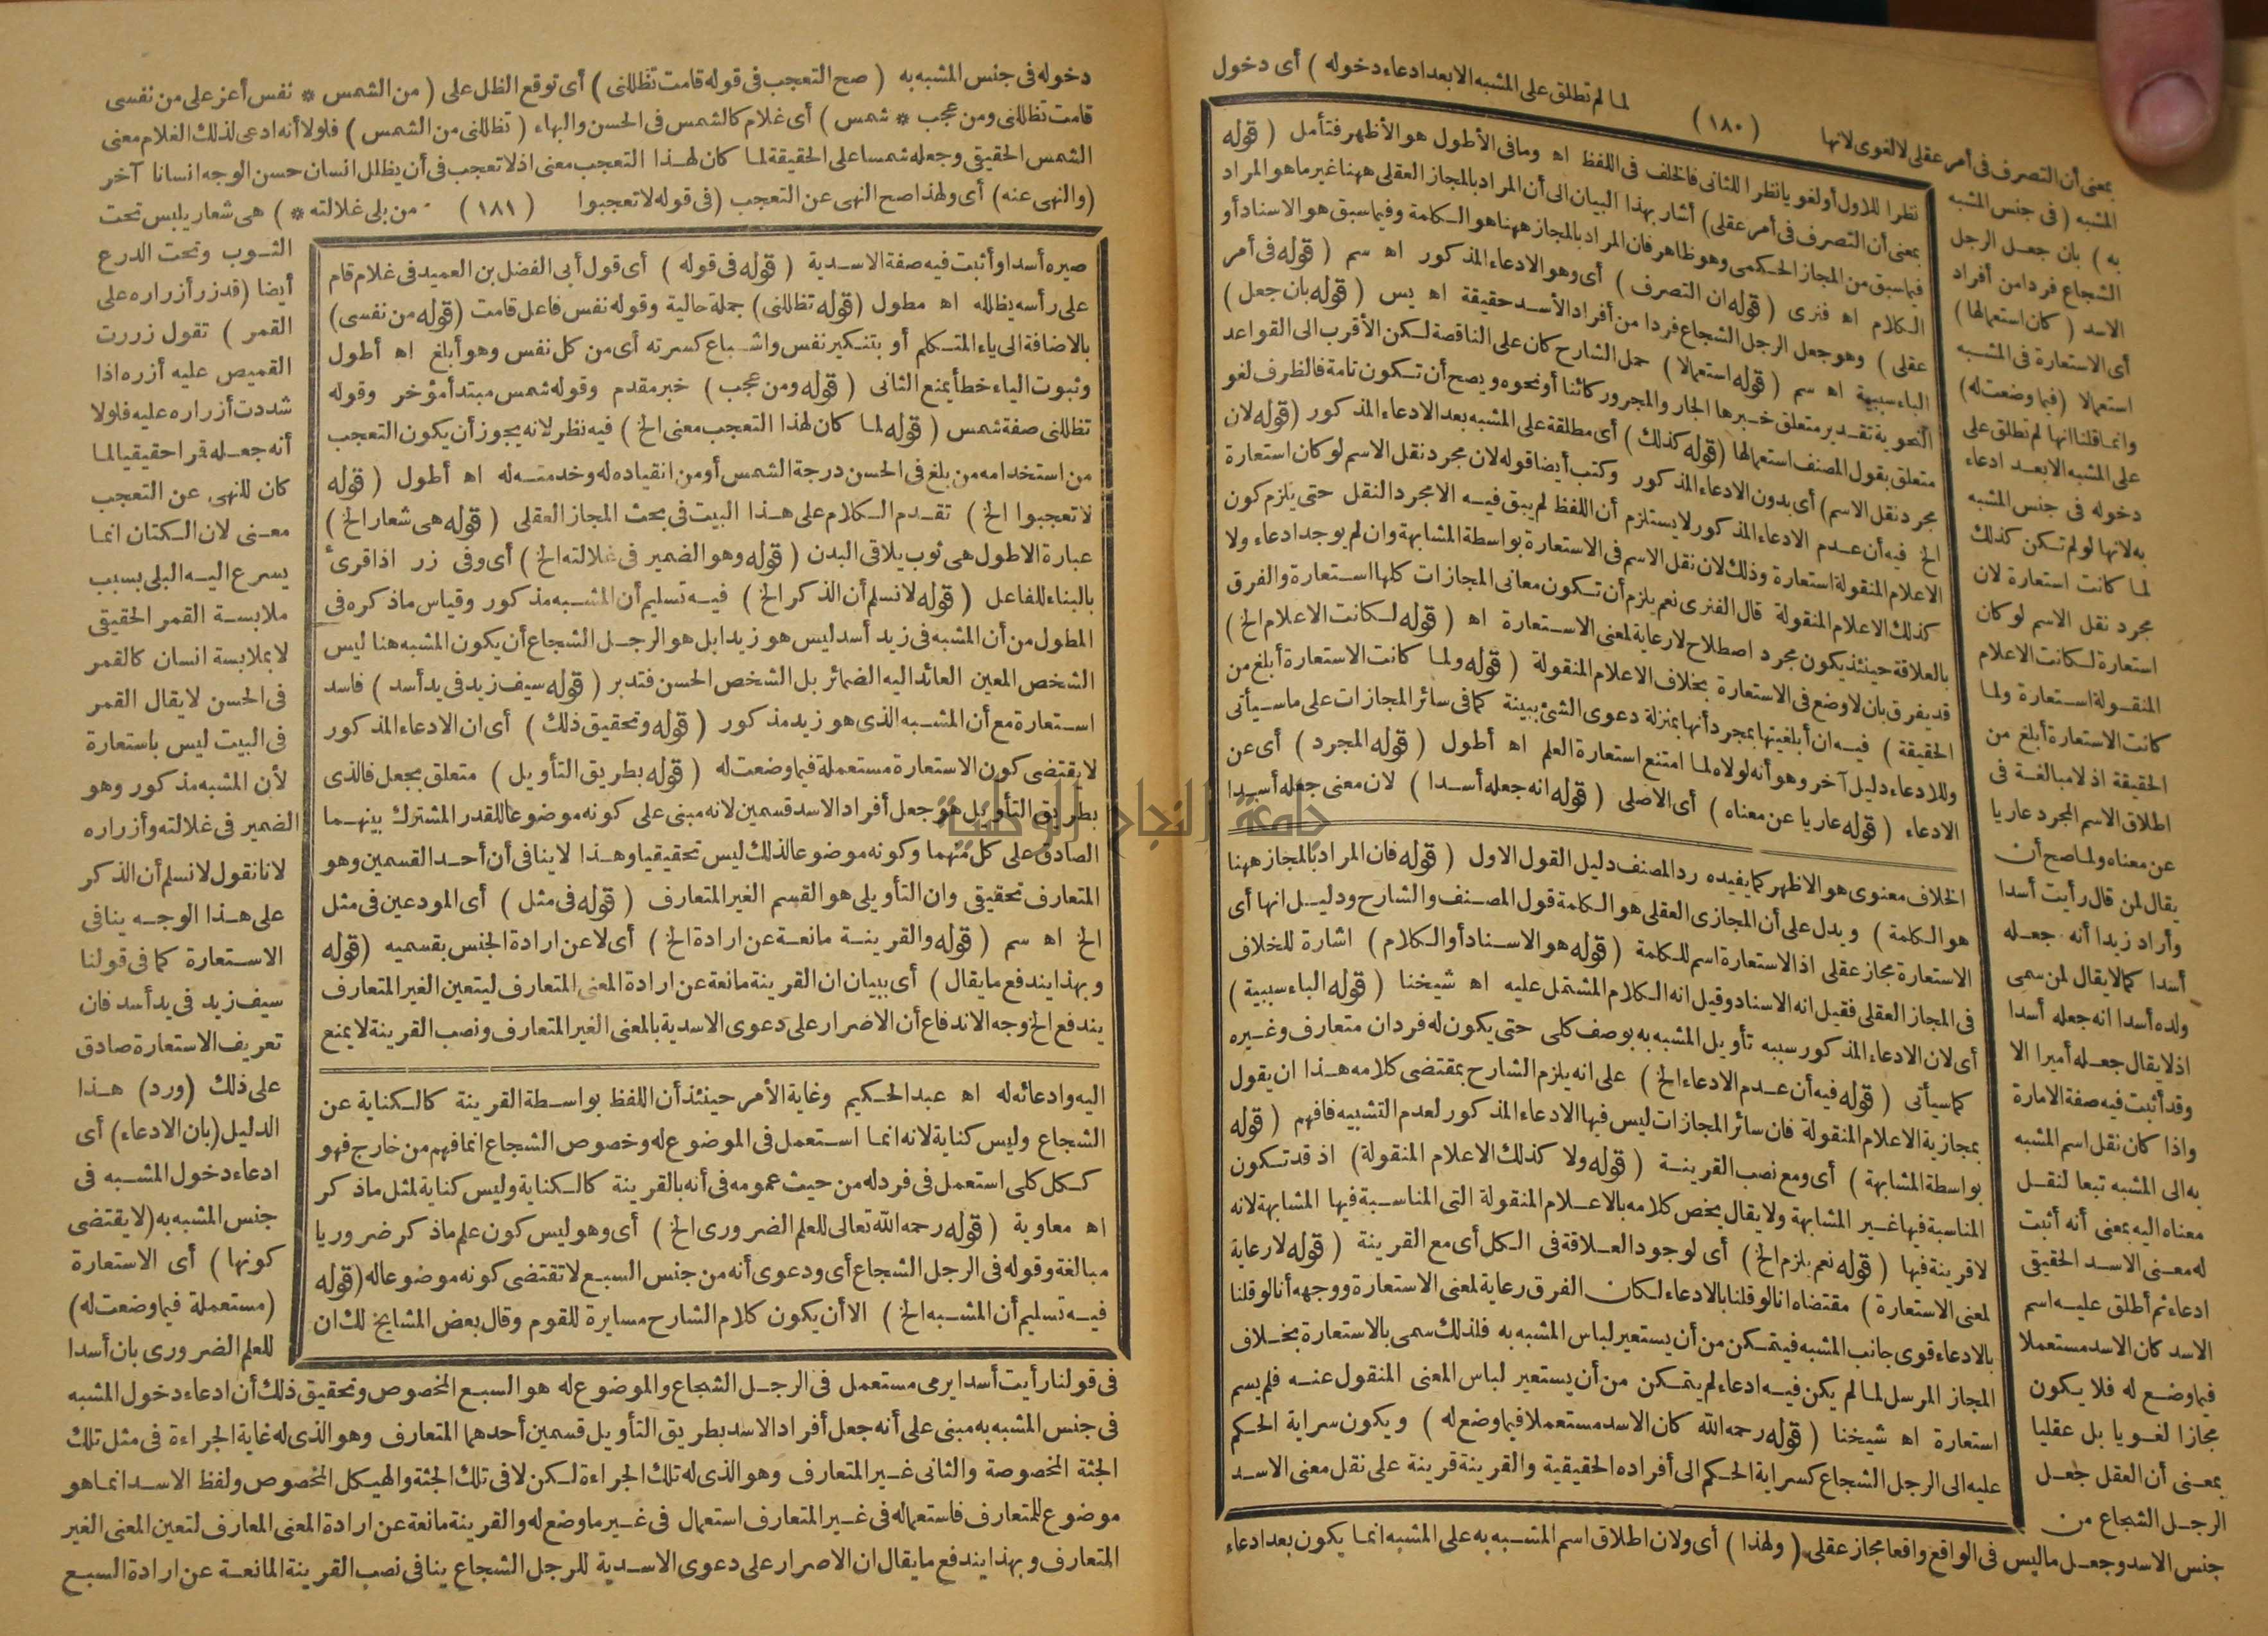 بمعنى أن التصرف فى أمر عقلى لا لغوى لانها (١٨٠) لما لم تطلق على المشبه الا بعد ادعاء دخوله ) أى دخول
المشبه ( فى جنس المشبه
به ) بان جعل الرجل
الشجاع فردا من أفراد
الاسد ( كان استعمالها )
أى الاستعارة فى المشبه
استعمالا (فيما وضعت له)
وانما قلنا انها لم تطلق على
على المشبه الا بعد ادعاء
دخوله فى جنس المشبه
به لانها لو لم تكن كذلك
لما كانت استعارة لان
مجرد نقل الاسم لو كان
استعارة لكانت الاعلام
المنقولة استعارة ولما
كانت الاستعارة أبلغ من
الحقيقة اذ لا مبالغة فى
اطلاق الاسم المجرد عاريا
عن معناه ولما صح أن
يقال لمن قال رأيت أسدا
وأراد زيدا أنه جعله
أسدا كما لا يقال لمن سمى
ولده أسدا انه جعله أسدا
اذ لا يقال جعله أميرا الا
وقد أثبت فيه صفة الامارة
واذا كان نقل اسم المشبه
به الى المشبه تبعا لنقل
معناه اليه بمعنى أنه أثبت
له معنى الاسد الحقيقى
ادعاء ثم أطلق عليه اسم
الاسد كان الاسد مستعملا
فيما وضع له فلا يكون
مجازا لغويا بل عقليا
بمعنى أن العقل جعل
الرجل الشجاع من
جنس الاسد وجعل ما ليس فى الواقع واقعا مجاز عقلى ( ولهذا ) أى ولان اطلاق اسم المشبه به على المشبه انما يكون بعد ادعاء
نظرا للاول أو لغويا نظرا للثانى فالخلف فى اللفظ اه وما فى الأطول هو الأظهر فتأمل ( قوله
بمعنى أن التصرف فى أمر عقلى ) أشار بهذا البيان الى أن المراد بالمجاز العقلى ههنا غير ما هو المراد
فيما سبق من المجاز الحكمى وهو ظاهر فان المراد بالمجاز ههنا هو الكلمة وفيما سبق هو الاسناد أو
الكلام اه فنرى ( قوله ان التصرف ) أى وهو الادعاء المذكور اه سم ( قوله فى أمر
عقلى ) وهو جعل الرجل الشجاع فردا من أفراد الأسد حقيقة اه يس ( قوله بان جعل )
الباء سببية اه سم ( قوله استعمالا ) حمل الشارح كان على الناقصة لكن الأقرب الى القواعد
النحوية تقدير متعلق خبرها الجار والمجرور كائنا أو نحوه ويصح أن تكون تامة فالظرف لغو
متعلق بقول المصنف استعمالها ( قوله كذلك ) أى مطلقة على المشبه بعد الادعاء المذكور ( قوله لان
مجرد نقل الاسم ) أى بدون الادعاء المذكور وكتب أيضا قوله لان مجرد نقل الاسم لو كان استعارة
الخ فيه أن عدم الادعاء المذكور لا يستلزم أن اللفظ لم يبق فيه الا مجرد النقل حتى يلزم كون
الاعلام المنقولة استعارة وذلك لان نقل الاسم فى الاستعارة بواسطة المشابهة وان لم يوجد ادعاء ولا
كذلك الاعلام المنقولة قال الفنرى نعم يلزم أن تكون معانى المجازات كلها استعارة والفرق
بالعلاقة حينئذ يكون مجرد اصطلاح لا رعاية لمعنى الاستعارة اه ( قوله لكانت الاعلام الخ )
قد يفرق بان لا وضع فى الاستعارة بخلاف الاعلام المنقولة ( قوله ولما كانت الاستعارة أبلغ من
الحقيقة ) فيه ان أبلغيتها بمجرد أنها بمنزلة دعوى الشئ ببينة كما فى سائر المجازات على ما سيأتى
وللادعاء دليل آخر وهو أنه لولاه لما امتنع استعارة العلم اه أطول ( قوله المجرد ) أى عن
الادعاء ( قوله عاريا عن معناه ) أى الاصلى ( قوله انه جعله أسدا ) لان معنى جعله أسدا
الخلاف معنوى هو الاظهر كما يفيده رد المصنف دليل القول الاول ( قوله فان المراد بالمجاز ههنا
هو الكلمة ) ويدل على أن المجازى العقلى هو الكلمة قول المصنف والشارح ودليل انها أى
الاستعارة مجاز عقلى اذ الاستعارة اسم للكلمة ( قوله هو الاسناد أو الكلام ) اشارة للخلاف
فى المجاز العقلى فقيل انه الاسناد وقيل انه الكلام المشتمل عليه اه شيخنا ( قوله الباء سببية )
أى لان الادعاء المذكور سببه تأويل المشبه به بوصف كلى حتى يكون له فردان متعارف وغيره
كما سيأتى ( قوله فيه أن عدم الادعاء الخ ) على انه يلزم الشارح بمقتضى كلامه هذا ان يقول
بمجازية الاعلام المنقولة فان سائر المجازات ليس فيها الادعاء المذكور لعدم التشبيه فافهم ( قوله
بواسطة المشابهة ) أى ومع نصب القرينة ( قوله ولا كذلك الاعلام المنقولة ) اذ قد تكون
المناسبة فيها غير المشابهة ولا يقال يخص كلامه بالاعلام المنقولة التى المناسبة فيها المشابهة لانه
لا قرينة فيها ( قوله نعم يلزم الخ ) أى لوجود العلاقة فى الكل أى مع القرينة ( قوله لا رعاية
لمعنى الاستعارة ) مقتضاه انا لو قلنا بالادعاء لكان الفرق رعاية لمعنى الاستعارة ووجهه أنا لو قلنا
بالادعاء قوى جانب المشبه فيتمكن من أن يستعير لباس المشبه به فلذلك سمى بالاستعارة بخلاف
المجاز المرسل لما لم يكن فيه ادعاء لم يتمكن من أن يستعير لباس المعنى المنقول عنه فلم يسم
استعارة اه شيخنا ( قوله رحمه الله كان الاسد مستعملا فيما وضع له ) ويكون سراية الحكم
عليه الى الرجل الشجاع كسراية الحكم الى أفراده الحقيقية والقرينة قرينة على نقل معنى الاسد
دخوله فى جنس المشبه به ( صح التعجب فى قوله قامت تظللنى ) أى توقع الظل على ( من الشمس * نفس أعز على من نفسى
قامت تظللنى ومن عجب * شمس ) أى غلام كالشمس فى الحسن والبهاء ( تظللنى من الشمس ) فلولا أنه ادعى لذلك الغلام معنى
الشمس الحقيقى وجعله شمسا على الحقيقة لما كان لهذا التعجب معنى اذ لا تعجب فى أن يظلل انسان حسن الوجه انسانا آخر
(والنهى عنه) أى ولهذا صح النهى عن التعجب (فى قوله لا تعجبوا (١٨١) من بلى غلالته * ) هى شعار يلبس تحت
الثوب وتحت الدرع
أيضا (قد زر أزراره على
القمر ) تقول زررت
القميص عليه أزره اذا
شددت أزراره عليه فلولا
أنه جعله قمرا حقيقيا لما
كان للنهى عن التعجب
معنى لان الكتان انما
يسرع اليه البلى بسبب
ملابسة القمر الحقيقى
لا بملابسة انسان كالقمر
فى الحسن لا يقال القمر
فى البيت ليس باستعارة
لأن المشبه مذكور وهو
الضمير فى غلالته وأزراره
لانا نقول لا نسلم أن الذكر
على هذا الوجه ينافى
الاستعارة كما فى قولنا
سيف زيد فى يد أسد فان
تعريف الاستعارة صادق
على ذلك (ورد) هذا
الدليل (بان الادعاء) أى
ادعاء دخول المشبه فى
جنس المشبه به (لا يقتضى
كونها) أى الاستعارة
(مستعملة فيما وضعت له)
للعلم الضرورى بان أسدا
فى قولنا رأيت أسدا يرمى مستعمل فى الرجل الشجاع والموضوع له هو السبع المخصوص وتحقيق ذلك أن ادعاء دخول المشبه
فى جنس المشبه به مبنى على أنه جعل أفراد الاسد بطريق التأويل قسمين أحدهما المتعارف وهو الذى له غاية الجراءة فى مثل تلك
الجثة المخصوصة والثانى غير المتعارف وهو الذى له تلك الجراءة لكن لا فى تلك الجثة والهيكل المخصوص ولفظ الاسد انما هو
موضوع للمتعارف فاستعماله فى غير المتعارف استعمال فى غير ما وضع له والقرينة مانعة عن ارادة المعنى المعارف لتعين المعنى الغير
المتعارف وبهذا يندفع ما يقال ان الاصرار على دعوى الاسدية للرجل الشجاع ينافى نصب القرينة المانعة عن ارادة السبع
صيره أسدا وأثبت فيه صفة الاسدية ( قوله فى قوله ) أى قول أبى الفضل بن العميد فى غلام قام
على رأسه يظلله اه مطول ( قوله تظللنى ) جملة حالية وقوله نفس فاعل قامت ( قوله من نفسى )
بالاضافة الى ياء المتكلم أو بتنكير نفس واشباع كسرته أى من كل نفس وهو أبلغ اه أطول
وثبوت الياء خطأ يمنع الثانى ( قوله ومن عجب ) خبر مقدم وقوله شمس مبتدأ مؤخر وقوله
تظللنى صفة شمس ( قوله لما كان لهذا التعجب معنى الخ ) فيه نظر لانه يجوز أن يكون التعجب
من استخدامه من بلغ فى الحسن درجة الشمس أو من انقياده له وخدمته له اه أطول ( قوله
لا تعجبوا الخ ) تقدم الكلام على هذا البيت فى بحث المجاز العقلى ( قوله هى شعار الخ )
عبارة الاطول هى ثوب يلاقى البدن ( قوله وهو الضمير فى غلالته الخ ) أى وفى زر اذا قرئ
بالبناء للفاعل ( قوله لا نسلم أن الذكر الخ ) فيه تسليم أن المشبه مذكور وقياس ما ذكره فى
المطول من أن المشبه فى زيد أسد ليس هو زيدا بل هو الرجل الشجاع أن يكون المشبه هنا ليس
الشخص المعين العائد اليه الضمائر بل الشخص الحسن فتدبر ( قوله سيف زيد فى يد أسد ) فاسد
استعارة مع أن المشبه الذى هو زيد مذكور ( قوله وتحقيق ذلك ) أى ان الادعاء المذكور
لا يقتضى كون الاستعارة مستعملة فيما وضعت له ( قوله بطريق التأويل ) متعلق بجعل فالذى
بطريق التأويل هو جعل أفراد الاسد قسمين لانه مبنى على كونه موضوعا للقدر المشترك بينهما
الصادق على كل منهما وكونه موضوعا لذلك ليس تحقيقيا وهذا لا ينافى أن أحد القسمين وهو
المتعارف تحقيقى وان التأويلى هو القسم الغير المتعارف ( قوله فى مثل ) أى المودعين فى مثل
الخ اه سم ( قوله والقرينة مانعة عن ارادة الخ ) أى لا عن ارادة الجنس بقسميه ( قوله
وبهذا يندفع ما يقال ) أى ببيان ان القرينة مانعة عن ارادة المعنى المتعارف ليتعين الغير المتعارف
يندفع الخ وجه الاندفاع أن الاضرار على دعوى الاسدية بالمعنى الغير المتعارف ونصب القرينة لا يمنع
اليه وادعائه له اه عبد الحكيم وغاية الأمر حينئذ أن اللفظ بواسطة القرينة كالكناية عن
الشجاع وليس كناية لانه انما استعمل فى الموضوع له وخصوص الشجاع انما فهم من خارج فهو
ككل كلى استعمل فى فرد له من حيث عمومه فى أنه بالقرينة كالكناية وليس كناية لمثل ما ذكر
اه معاوية ( قوله رحمه الله تعالى للعلم الضرورى الخ ) أى وهو ليس كون علم ما ذكر ضروريا
مبالغة وقوله فى الرجل الشجاع أى ودعوى أنه من جنس السبع لا تقتضى كونه موضوعا له ( قوله
فيه تسليم أن المشبه الخ ) الا أن يكون كلام الشارح مسايرة للقوم وقال بعض المشايخ لك ان
جامعة النجاح الوطنية